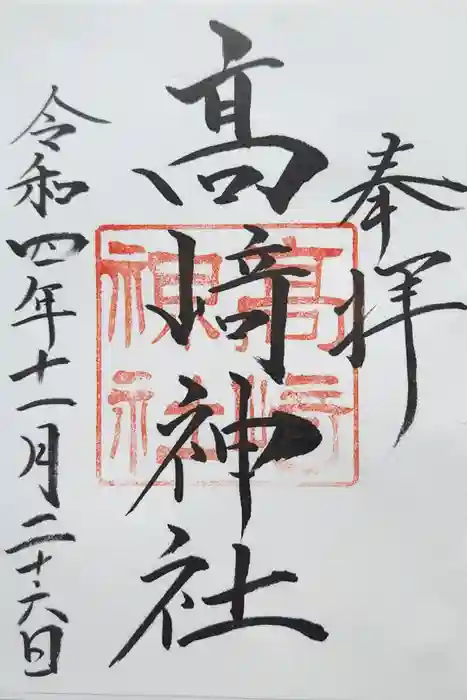 奉拝
高崎神社
高崎
神社
令和四年十一月二十六日